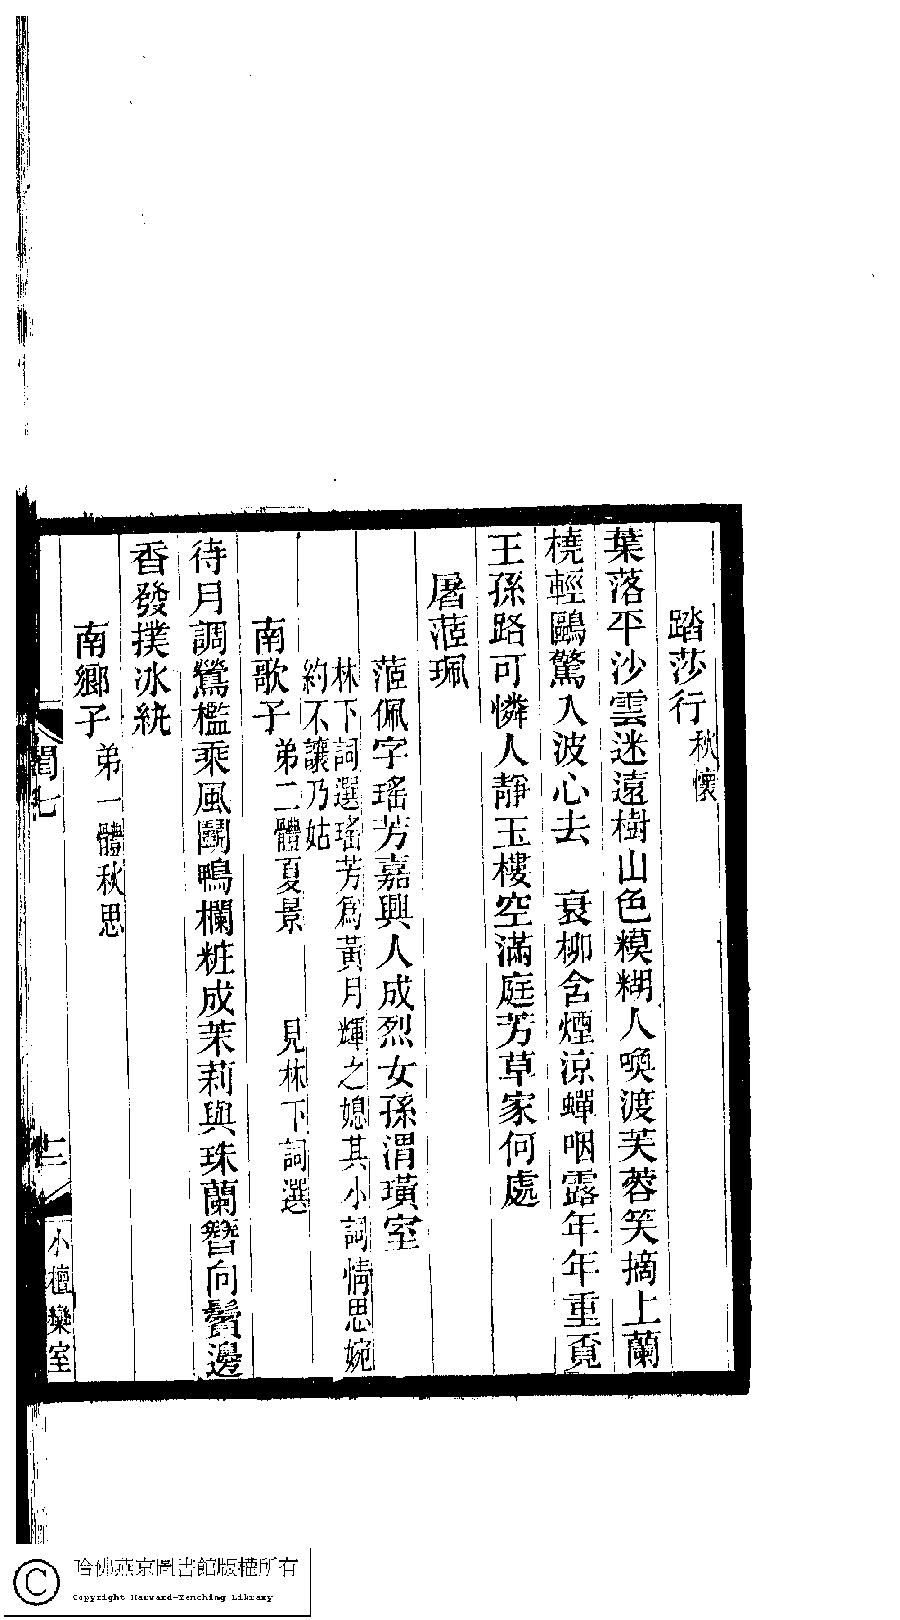 踏莎行秋懷
葉落平沙雲迷遠樹山色糢糊人喚渡芙蓉笑摘上蘭
橈輕鷗驚入波心去　衰柳含煙涼蟬咽露年年重覔
王孫路可憐人靜玉樓空滿庭芳草家何處
屠茝珮
茝佩字瑤芳嘉興人成烈女孫渭璜室
林下詞選瑤芳爲黃月輝之媳其小詞情思婉
約不讓乃姑
南歌子弟二體夏景　見林下詞選
待月調鶯檻乘風鬭鴨欄粧成茉莉與珠蘭簪向鬢邊
香發撲冰紈
南鄉子弟一體秋思
閨七
三
小檀欒室
哈佛燕京圖書館版權所有
Copyright Harvard-Yenching Library